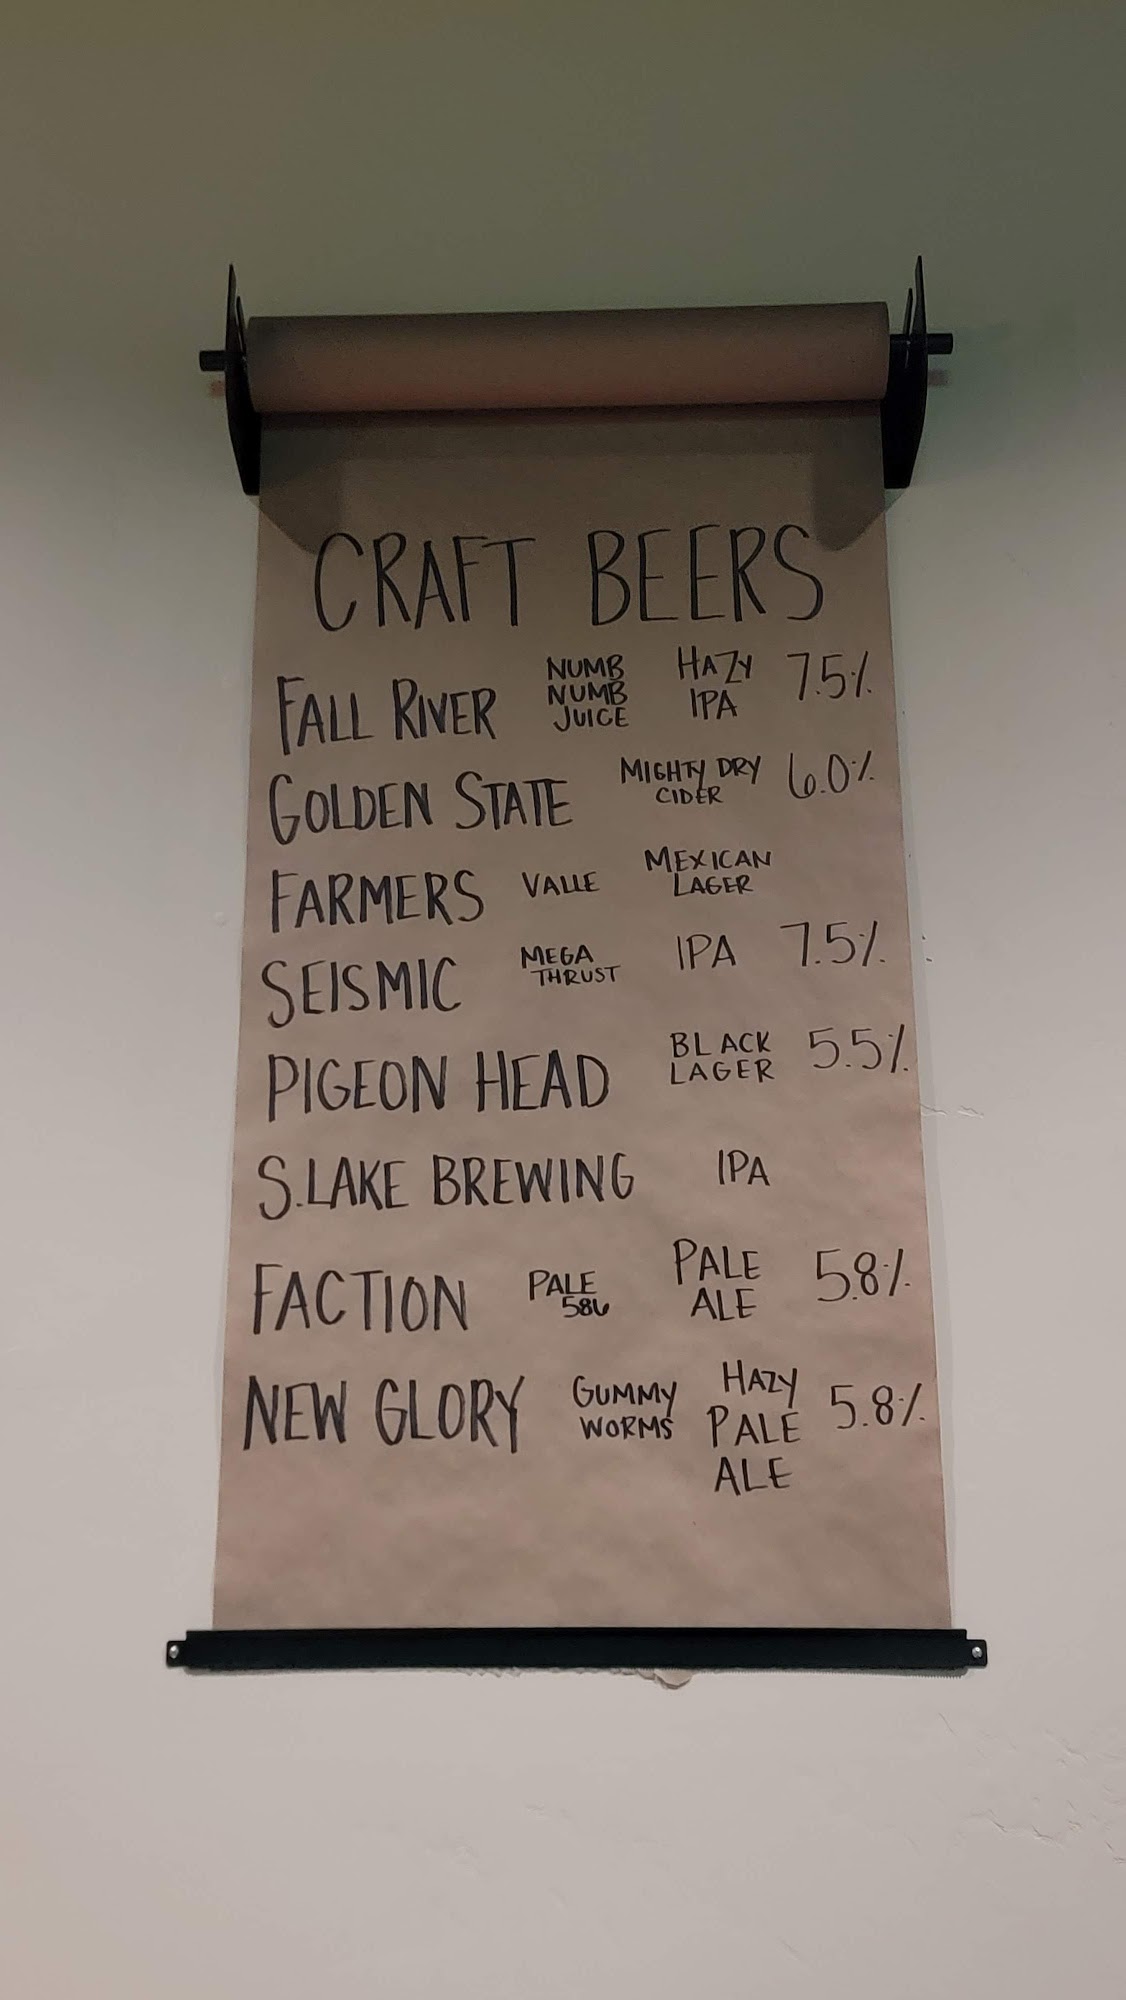 CRAFT BEERS
FALL RIVER NUMB NUMB JUICE HAZY IPA 7.5%
GOLDEN STATE MIGHTY DRY CIDER 6.0%
FARMERS VALLE MEXICAN LAGER
SEISMIC MEGA THRUST IPA 7.5%
PIGEON HEAD BLACK LAGER 5.5%
S.LAKE BREWING IPA
FACTION PALE 586 PALE ALE 5.8%
NEW GLORY GUMMY WORMS HAZY PALE ALE 5.8%